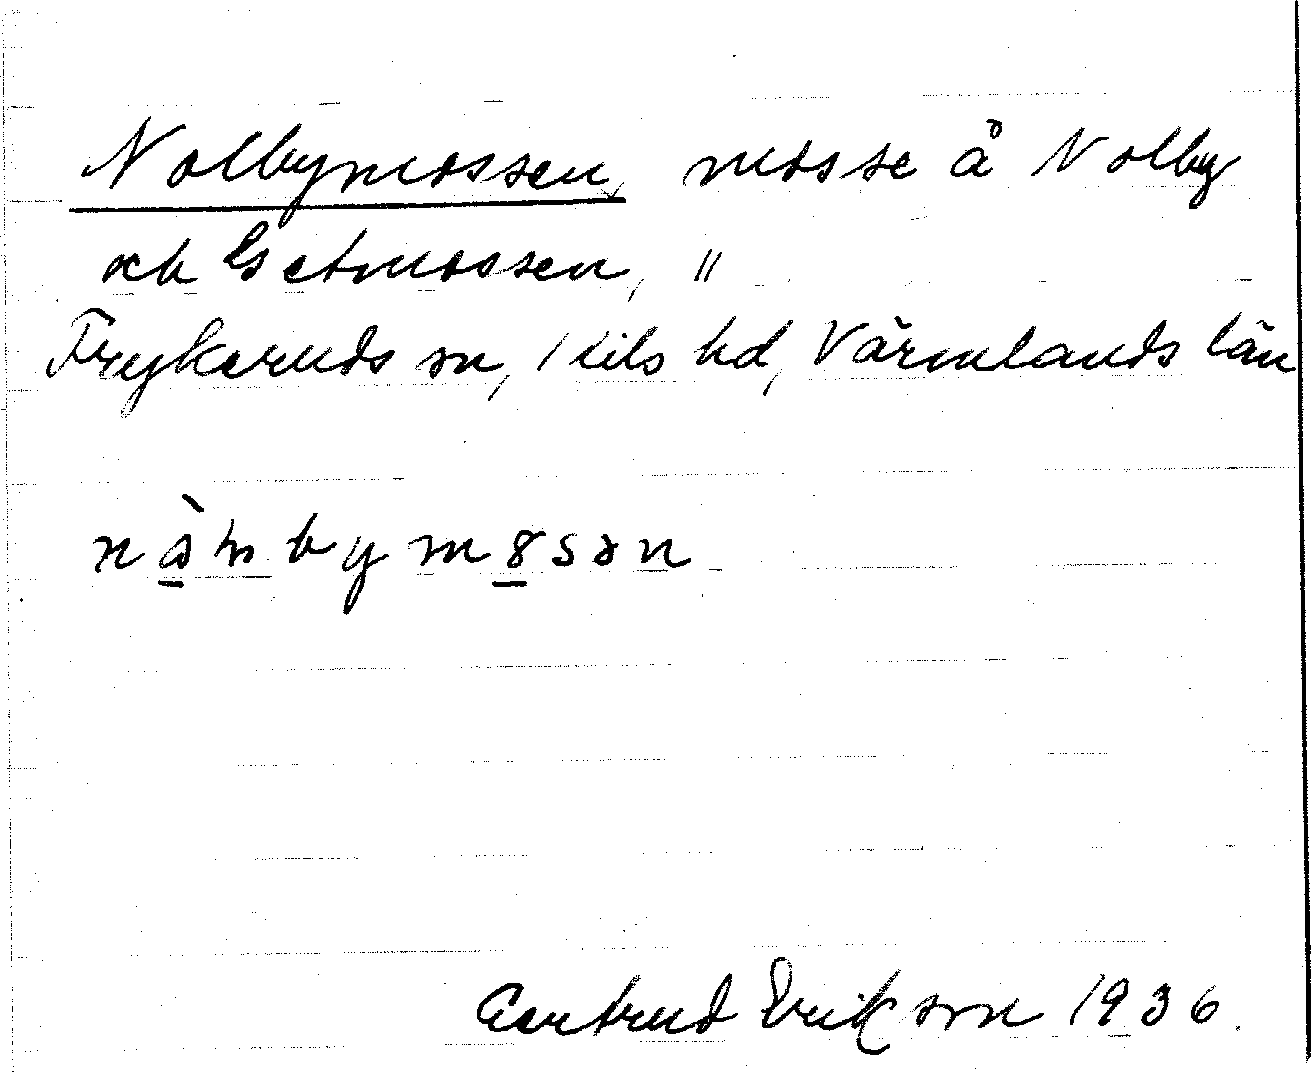 Nolbymossen, mosse å Nolby
och Getmossen, "
Frykeruds sn, Kils hd, Värmlands län
Gertrud Erikson 1936.